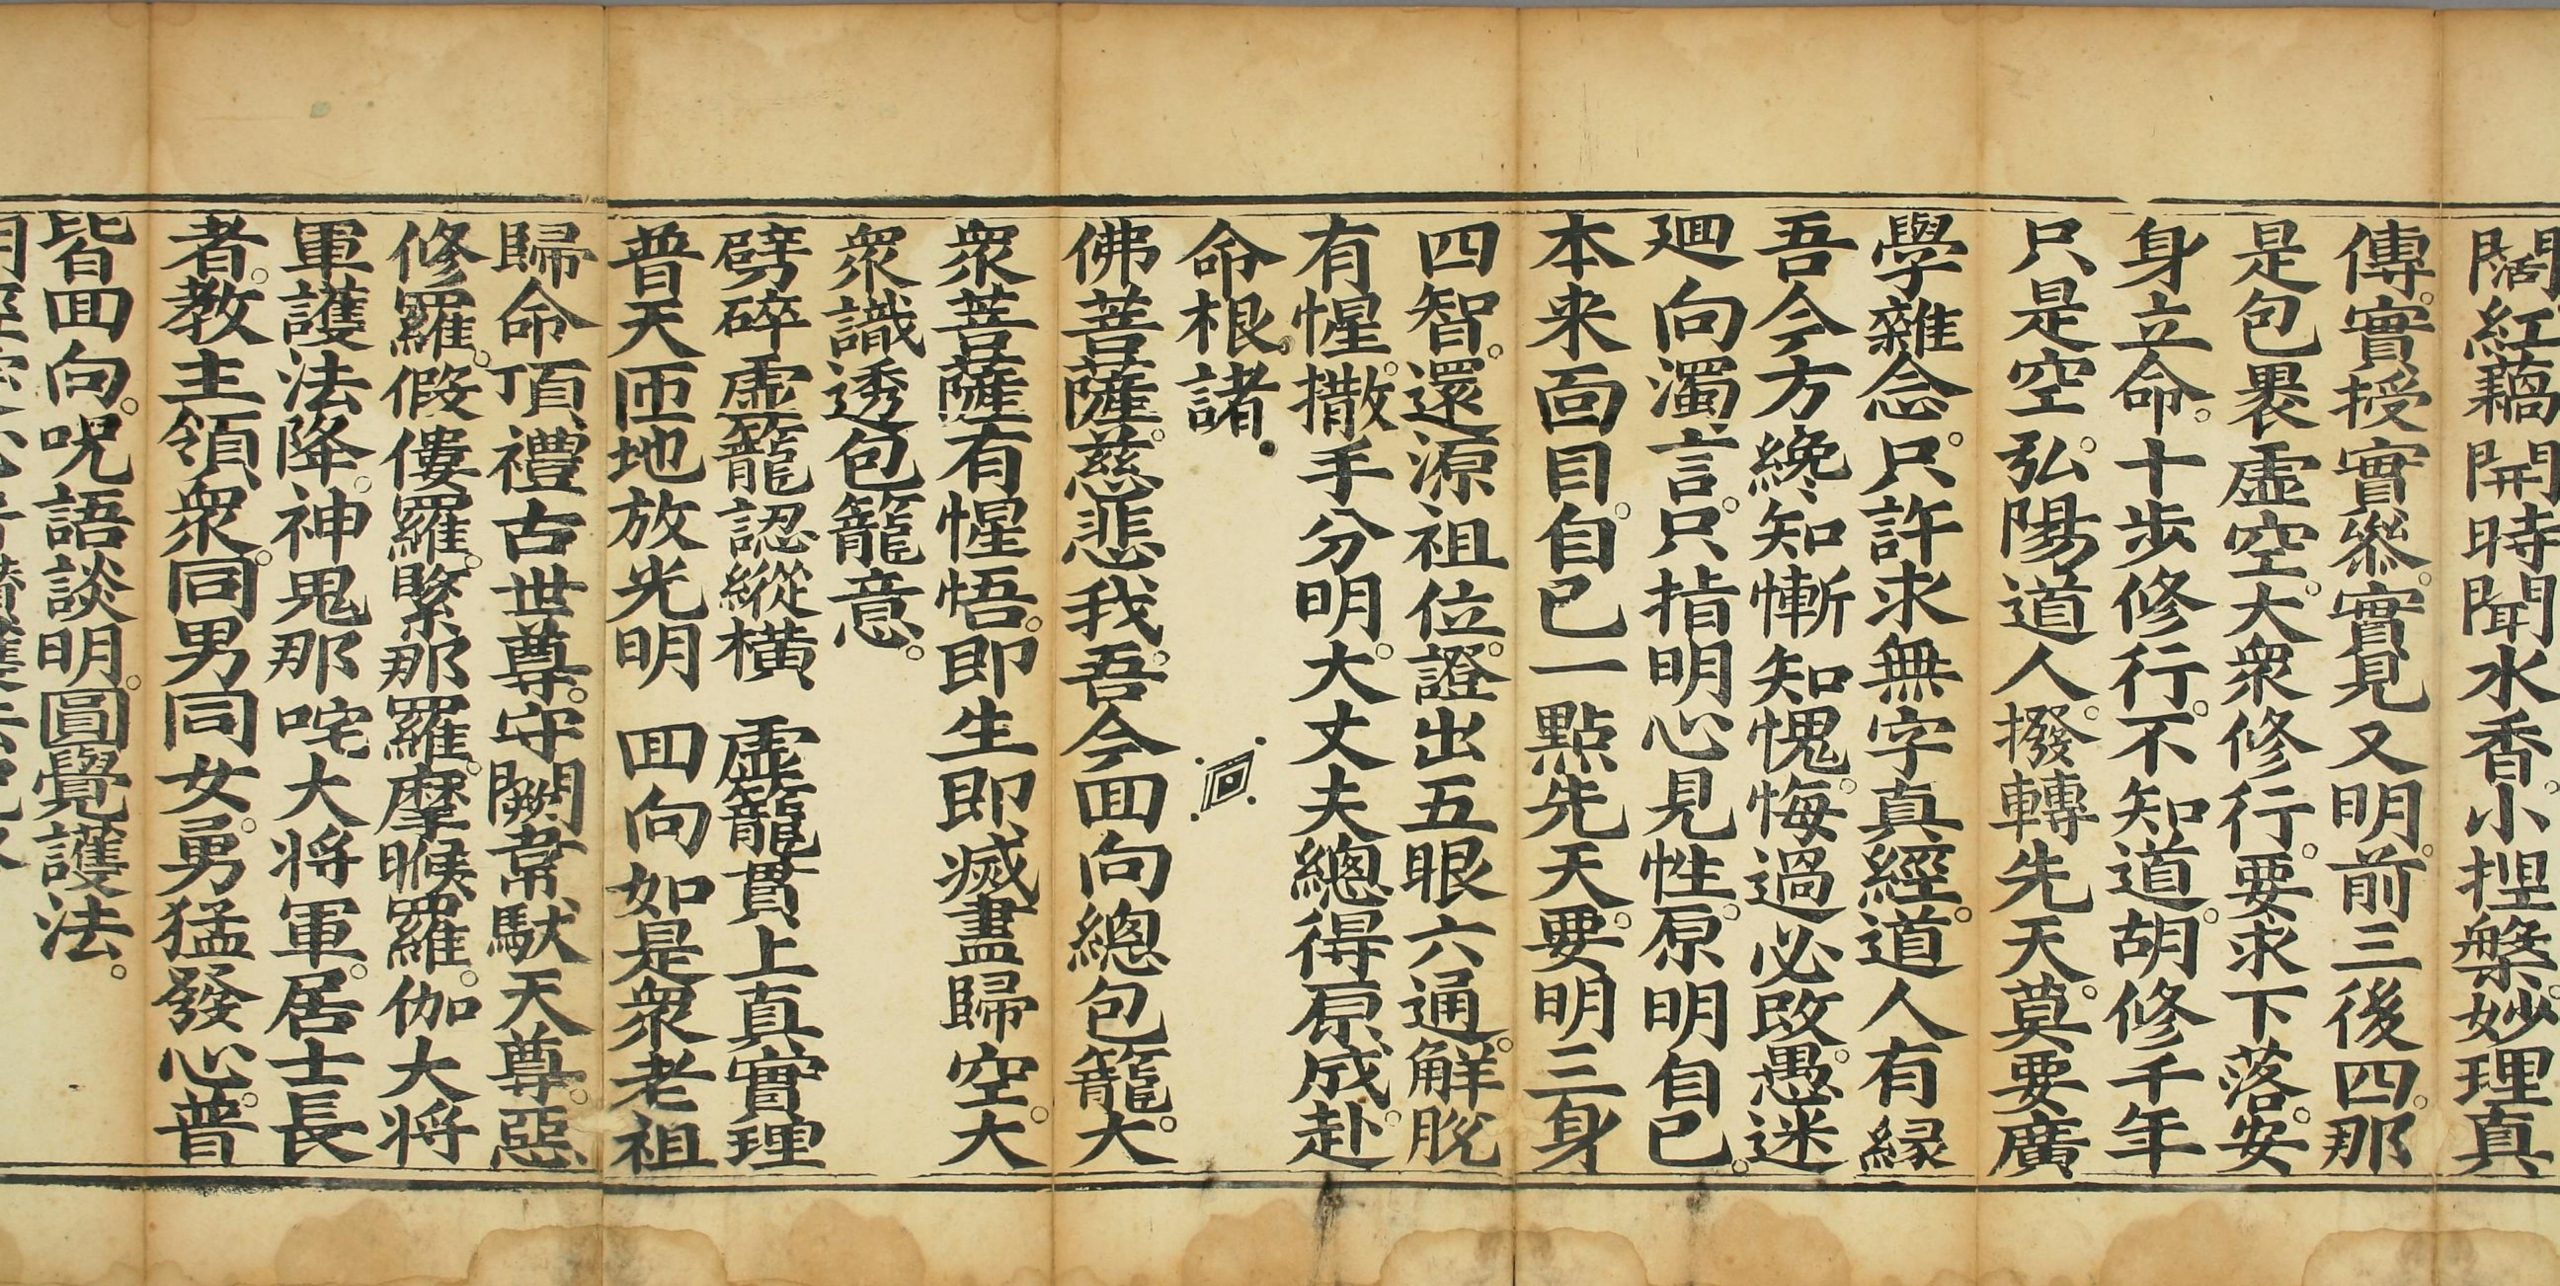 闊紅藕開時聞水香。小揑槃。妙理真
傳。實授實叅。實見又明。前三後四。那
是包褁虚空。大衆修行。要求下落。安
身立命。十步修行。不知道。胡修千年
只是空。弘陽道人。撥轉先天。莫要廣
學雜念。只許求無字真經。道人有緣
吾今方纔知慚知愧。悔過必改。愚迷
廻向濁言。只指明心見性。原明自己。
本来面目。自己一點先天。要明三身
四智。還源祖位。證出五眼六通。觧脫
有惺。撒手分明。大丈夫總得原成。赴
命根。諸。
佛菩薩。慈悲我。吾今回向總包籠。大
衆菩薩有惺悟。即生即滅盡歸空。大
衆識透包籠意。
劈碎虚籠認縱横　虚籠貫上真實理
普天匝地放光明　回向如是衆老祖
歸命頂禮古世尊。守闕韋馱天尊。惡
修羅。假僂羅。緊那羅。摩睺羅。伽大将
軍護法降。神鬼那咤大将軍。居士長
者。教主領衆。同男同女。勇猛發心。普
皆回向。呪語談明。圓覺護法。